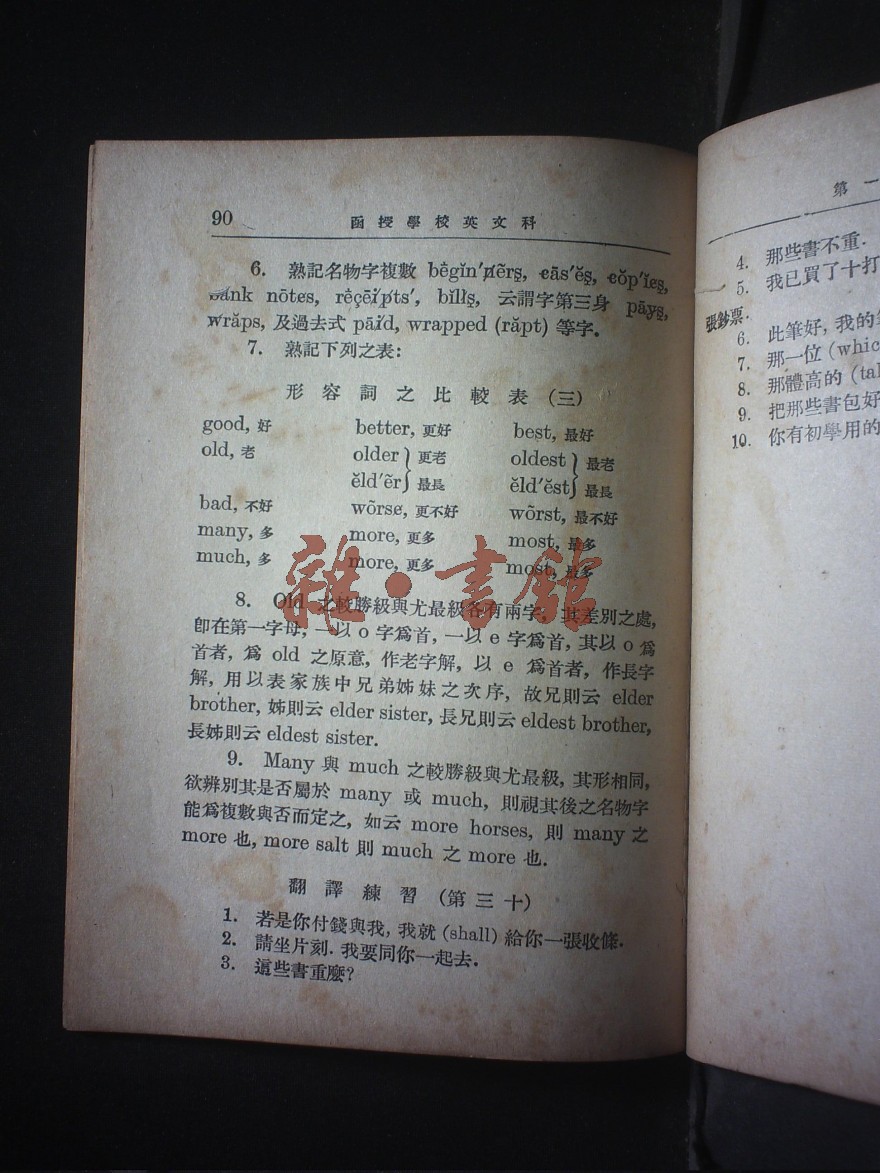 90 函授學校英文科
6. 熟記名物字複數 bḗgĭn′n̸ẽrs̱, ꞓās′ĕs̱, ꞓŏp′ĭɇs̱,
bank nōtɇs, rḗçēi̸p̸ts′, bĭll̸s̱, 云謂字第三身 pāy̸s̱,
w̸răps, 及過去式 pāi̸d, wrapped (răpt) 等字.
7. 熟記下列之表:
形容詞之比較表 (三)
good, 好 better, 更好 best, 最好
old, 老 older 更老 oldest 最老
ĕld′ẽr 最長 ĕld′ĕst 最長
bad, 不好 wõrsɇ, 更不好 wõrst, 最不好
many, 多 more, 更多 most, 最多
much, 多 more, 更多 most, 最多
8. Old 之較勝級與尤最級各有兩字, 其差別之處,
卽在第一字母, 一以 o 字爲首, 一以 e 字爲首, 其以 o 爲
首者, 爲 old 之原意, 作老字解, 以 e 爲首者, 作長字
解, 用以表家族中兄弟姊妹之次序, 故兄則云 elder
brother, 姊則云 elder sister, 長兄則云 eldest brother,
長姊則云 eldest sister.
9. Many 與 much 之較勝級與尤最級, 其形相同,
欲辨別其是否屬於 many 或 much, 則視其後之名物字
能爲複數與否而定之, 如云 more horses, 則 many 之
more 也, more salt 則 much 之 more 也.
翻譯練習 (第三十)
1. 若是你付錢與我, 我就 (shall) 給你一張收條.
2. 請坐片刻. 我要同你一起去.
3. 這些書重麼?
第一
4. 那些書不重.
5. 我已買了十打
張鈔票.
6. 此筆好, 我的
7. 那一位 (whic
8. 那體高的 (tal
9. 把那些書包好
10. 你有初學用的
雜·書館